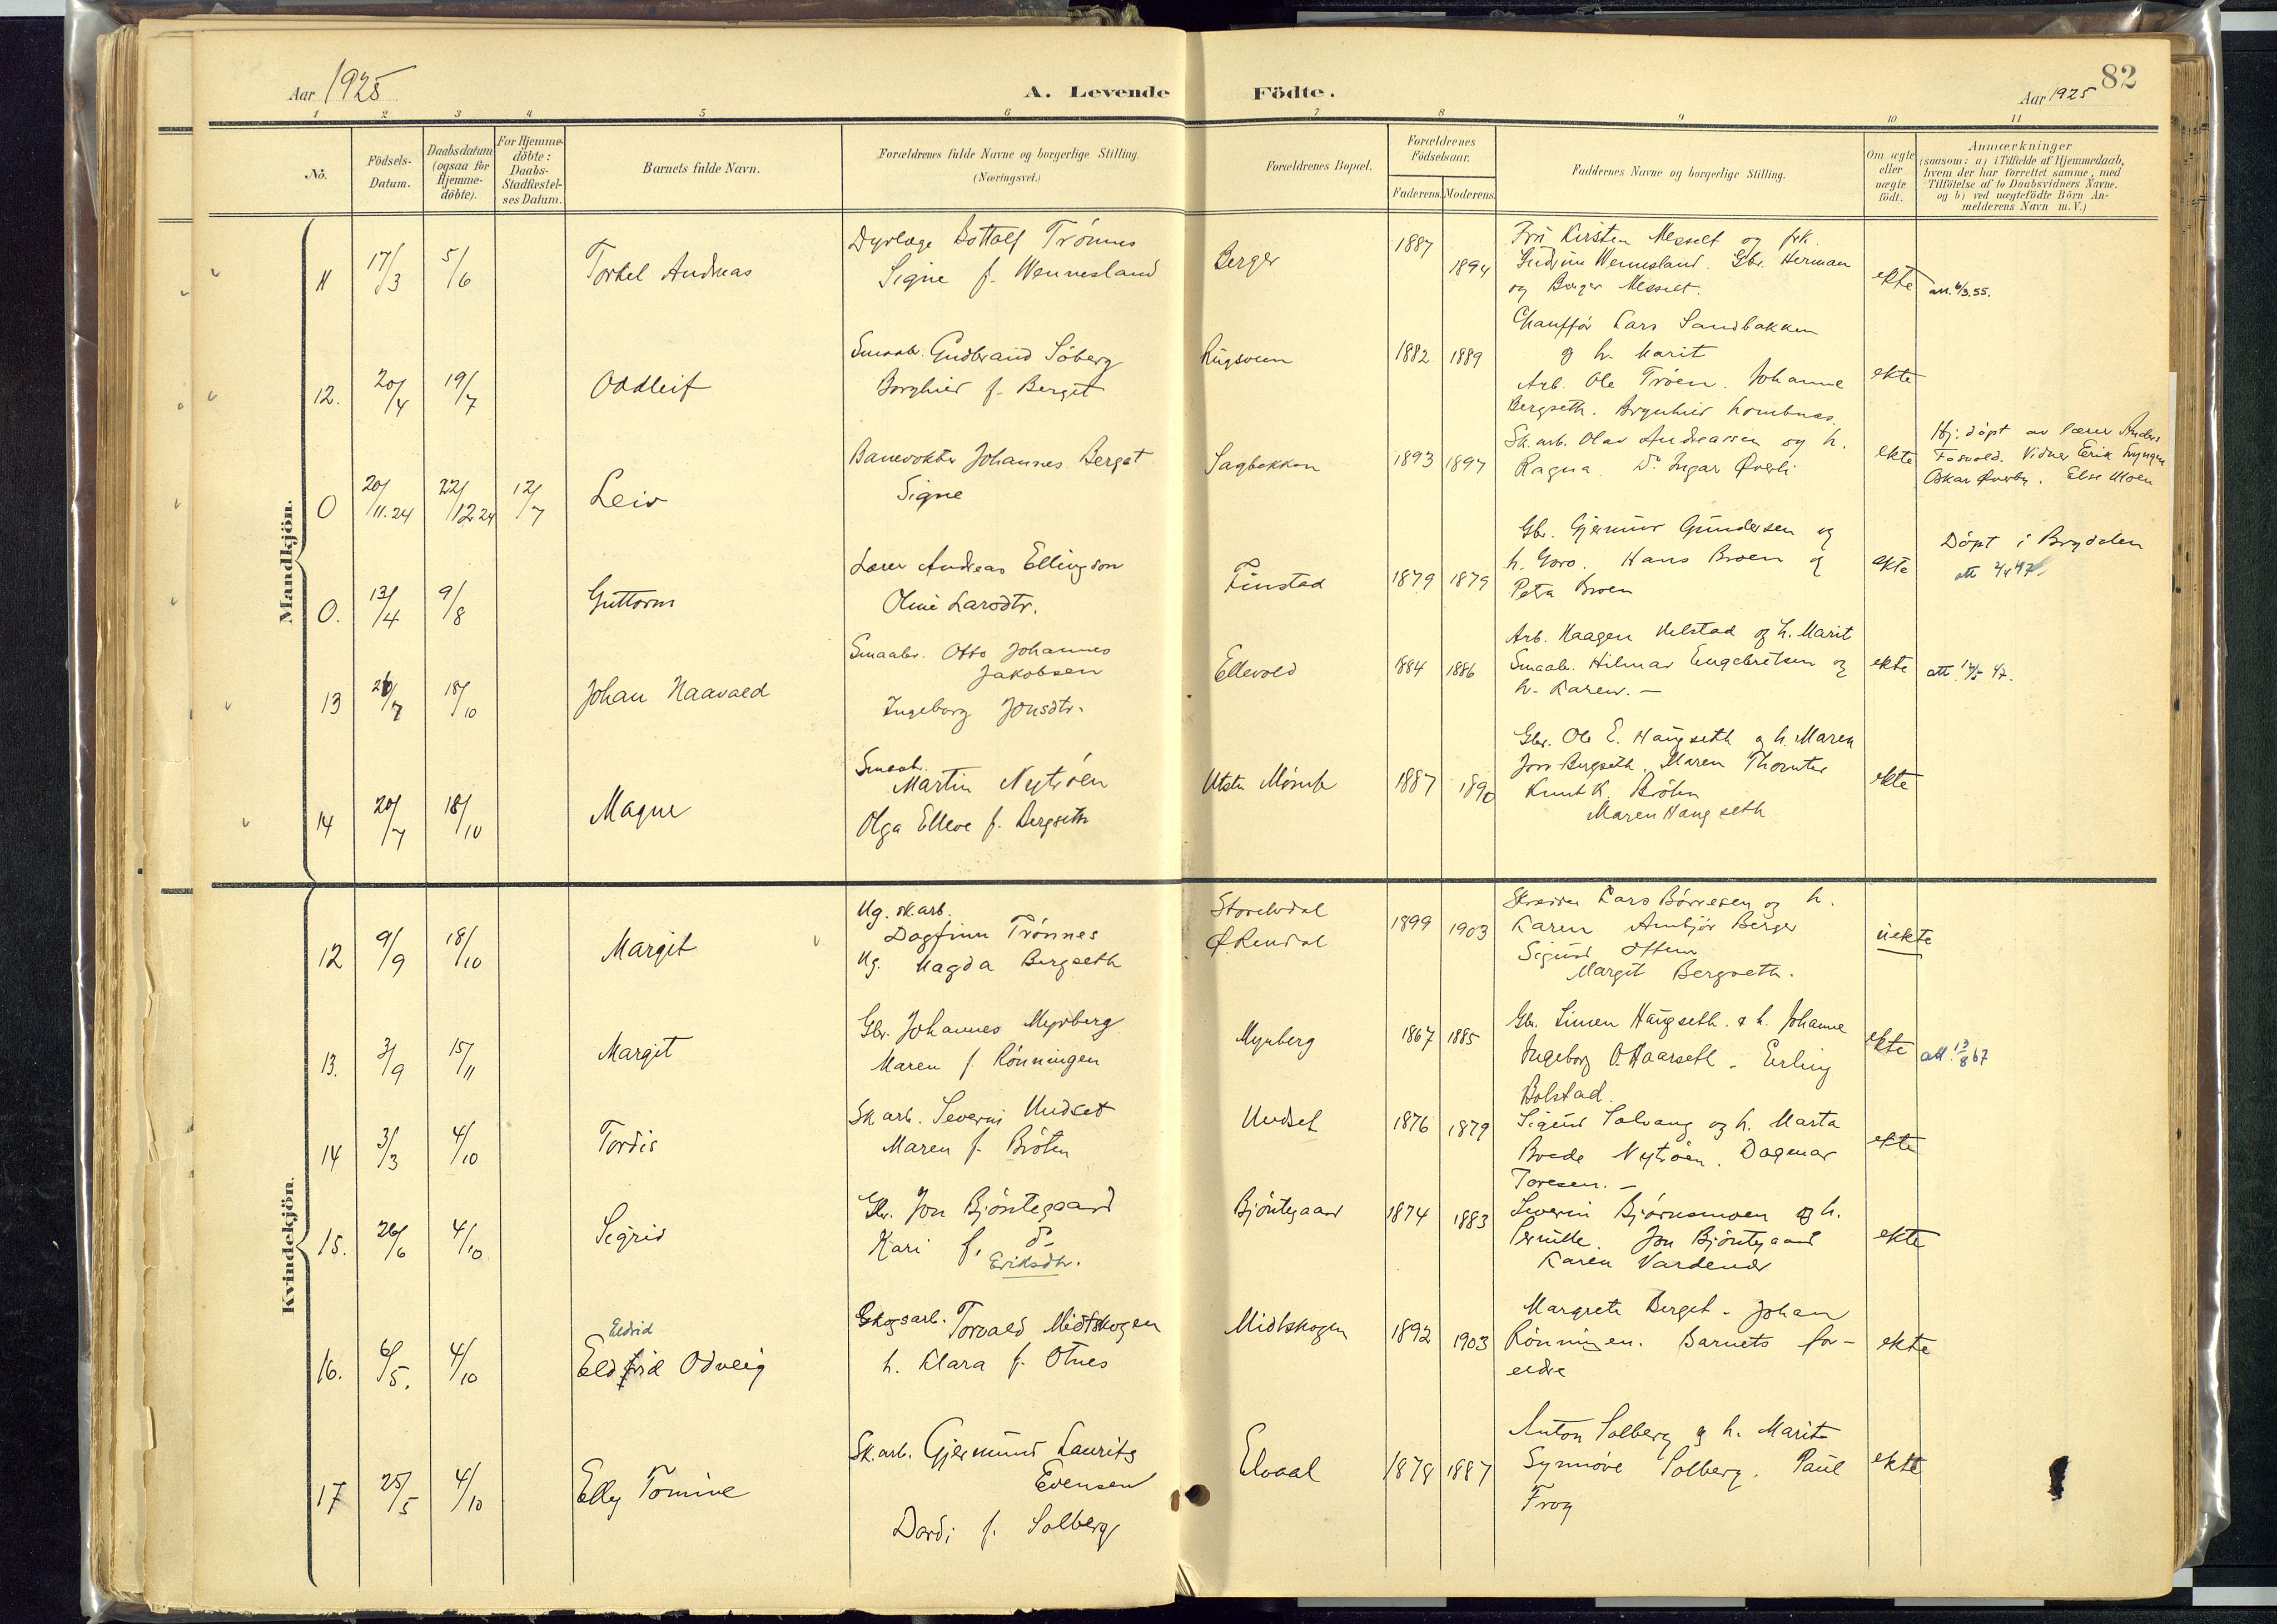 Aar 1925
A. Levende Födte.
Aar 1925
82
1 2 3 4 5 6 7 8 9 10 11
No.
Födsels-Datum.
Daabsdatum (ogsaa for Hjemme-döbte).
For Hjemme-döbte: Daabs-Stadfæstel-ses Datum.
Barnets fulde Navn.
Forældrenes fulde Navne og borgerlige Stilling.
(Næringsvei.)
Forældrenes Bopæl.
Forældrenes Födselsaar.
Faderens. Moderens.
Faddernes Navne og borgerlige Stilling.
Om ægte eller uægte födt.
Anmærkninger
(saasom: a) i Tilfælde af Hjemmedaab,
hvem der har forrettet samme, med
Tilföielse af to Daabsvidners Navne,
og b) ved uægtefödte Börn An-
melderens Navn m. V.)
Mandkjön.
11 17/3 5/6 Torkel Andreas
Dyrlæge Bottolf Trónnes
Signe f. Wennesland
Berger 1887 1894
Frú Kirsten Messelt og frk.
Gudrún Wennesland. Gbr. Herman
og Berger Messelt.
ekte att. 6/3.55.
12. 20/4 19/7 Oddleif
Smaabr. Gudbrand Söberg
Borghild f. Berget
1882 1889
Chauffør Lars Sandbakken
og h. Marit
Arb. Ole Trøen. Johanne
Bergseth.
ekte
0 20/11.24 22/12.24 12/7 Leiv
Banevokter Johannes Berget
Signe
Sagbakken 1893 1897
Sk. arb. Olav Andreassen og h.
Ragna. Do Ingar Øverli
ekte
Hj: döpt av lærer Anders
Fosvold. Vidner Erik
Oskar Øverby. Else Moen
0. 13/4 9/8 Guttorm
Lærer Andreas Ellingson
Oline Larsdtr.
Finstad 1879 1879
Gbr. Gjermúnd Gúndersen og
h. Goro. Hans Broen og
Petra Broen
ekte
Döpt i Brydalen
att
13 26/7 18/10 Johan Haavald
Smaabr. Otto Johannes
Jakobsen
Ingeborg Jonsdtr.
Ellevold 1884 1886
Arb. Haagen Helstad og h. Marit
Smaabr. Hilmar Engebretsen og
h. Karen. -
ekte att. 14/5 47.
14 20/7 18/10 Magne
Smaabr.
Martin Nytróen
Olga Elleve f. Bergseth
1887 1890
Gbr. Ole E. Haúgseth og h. Maren
Jon Bergseth. Maren
Knut K. Bróten
Maren Haugseth
ekte
Kvindekjön.
12 9/9 18/10 Margit
Ug. sk.arb.
Dagfinn Trónnes
Ug. Magda Bergseth
Storelvdal
Ø. Rendal
1899 1903
Lars Børresen og h.
Karen Ambjór Berger
Sigurd
Margit Bergseth.
úekte
13. 3/9 15/11 Margit
Gbr. Johannes Myrberg
Maren f. Rónningen
Myrberg 1867 1885
Gbr. Simen Haúgseth & h. Johanne
Ingeborg O. Haarseth. Erling
Bolstad.
ekte att. 13/8 67
14 3/3 4/10 Tordis
Sk arb. Severin Undset
Maren f. Bróten
Undset 1876 1879
Sigurd Solvang og h. Marta
Brede Nytróen. Dagmar
Toresen. -
ekte
15. 26/6 4/10 Sigrid
Gbr. Jon Bjóntegaard
Kari f. do
Eriksdtr.
Bjóntegaard 1874 1883
Severin Bjórnsmoen og h.
Pernille. Jon Bjóntegaard
Karen
ekte
16. 6/5. 4/10 Eldrid
Eldfrid Odveig
Skogsarb. Torvald Midtskogen
h. Klara f. Otnes
Midtskogen 1892 1903
Margrete Berget - Johan
Rónningen. Barnets for-
eldre
ekte
17 25/5 4/10 Elly Tomine
Sk. arb. Gjermúnd Laurits
Evensen
Dordi f. Solberg
Elvaal 1878 1887
Anton Solberg og h. Marit
Synnöve Solberg. Paúl
Frog
ekte